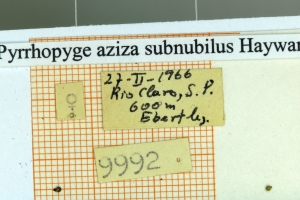 Pyrrhopyge aziza subnubilus Haywar
27-II-1966
Rio Claro, S.P.
600m
Ebert lg.
9992